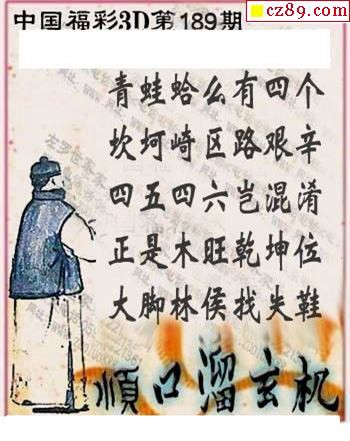 cz89.com
中国福彩3D第189期
青蛙蛤么有四个
坎坷崎区路艰辛
四五四六岂混淆
正是木旺乾坤位
大脚林侯找失鞋
顺口溜玄机